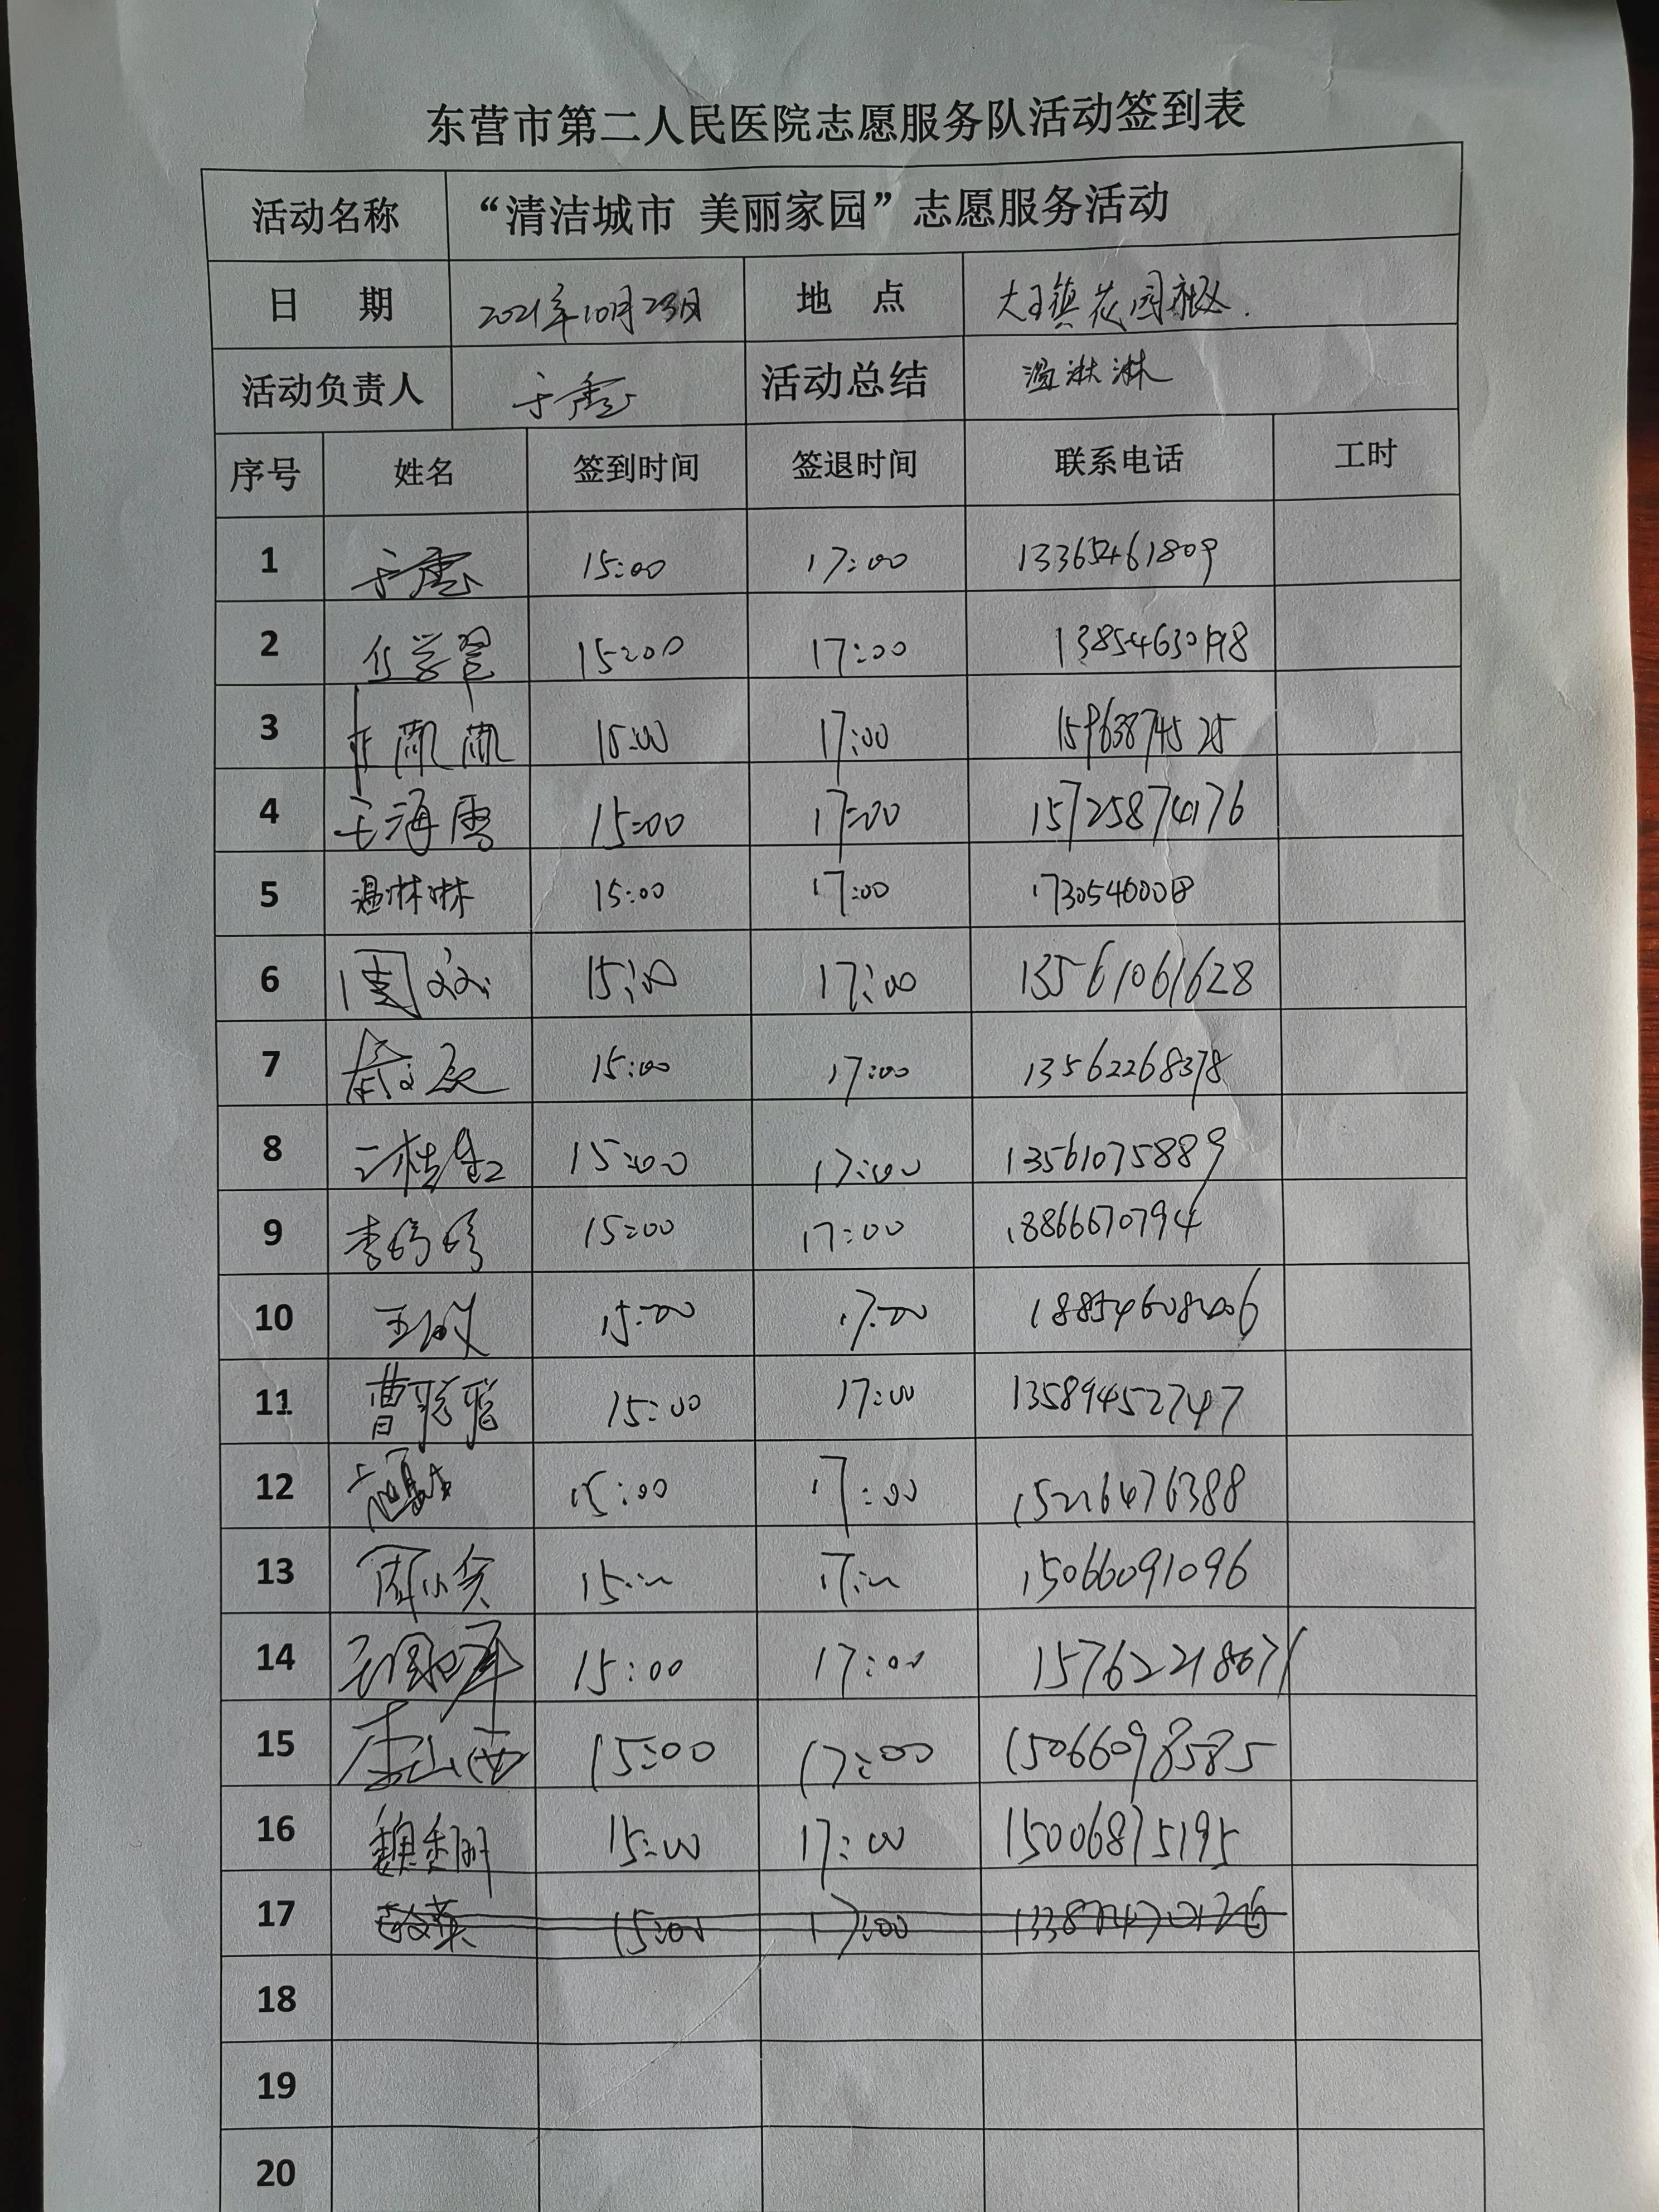 东营市第二人民医院志愿服务队活动签到表
活动名称 “清洁城市 美丽家园”志愿服务活动
日 期 2021年10月23日 地 点 大王镇花园社区.
活动负责人 活动总结 温淋淋
序号 姓名 签到时间 签退时间 联系电话 工时
1 15:00 17:00 13365461809
2 15:00 17:00
3 15:00 17:00 15963874525
4 于海雪 15:00 17:00 15725874176
5 温淋淋 15:00 17:00
6 15:00 17:00 13561061628
7 15:00 17:00 13562268378
8 15:00 17:00 13561075889
9 15:00 17:00 18866670794
10 15:00 17:00
11 曹聪聪 15:00 17:00 13589452747
12 15:00 17:00 15216476388
13 周小兵 15:00 17:00 15066091096
14 15:00 17:00 15762218671
15 李山西 15:00 17:00 15066098585
16 魏秀丽 15:00 17:00 15006875195
17 15:00 17:00
18
19
20